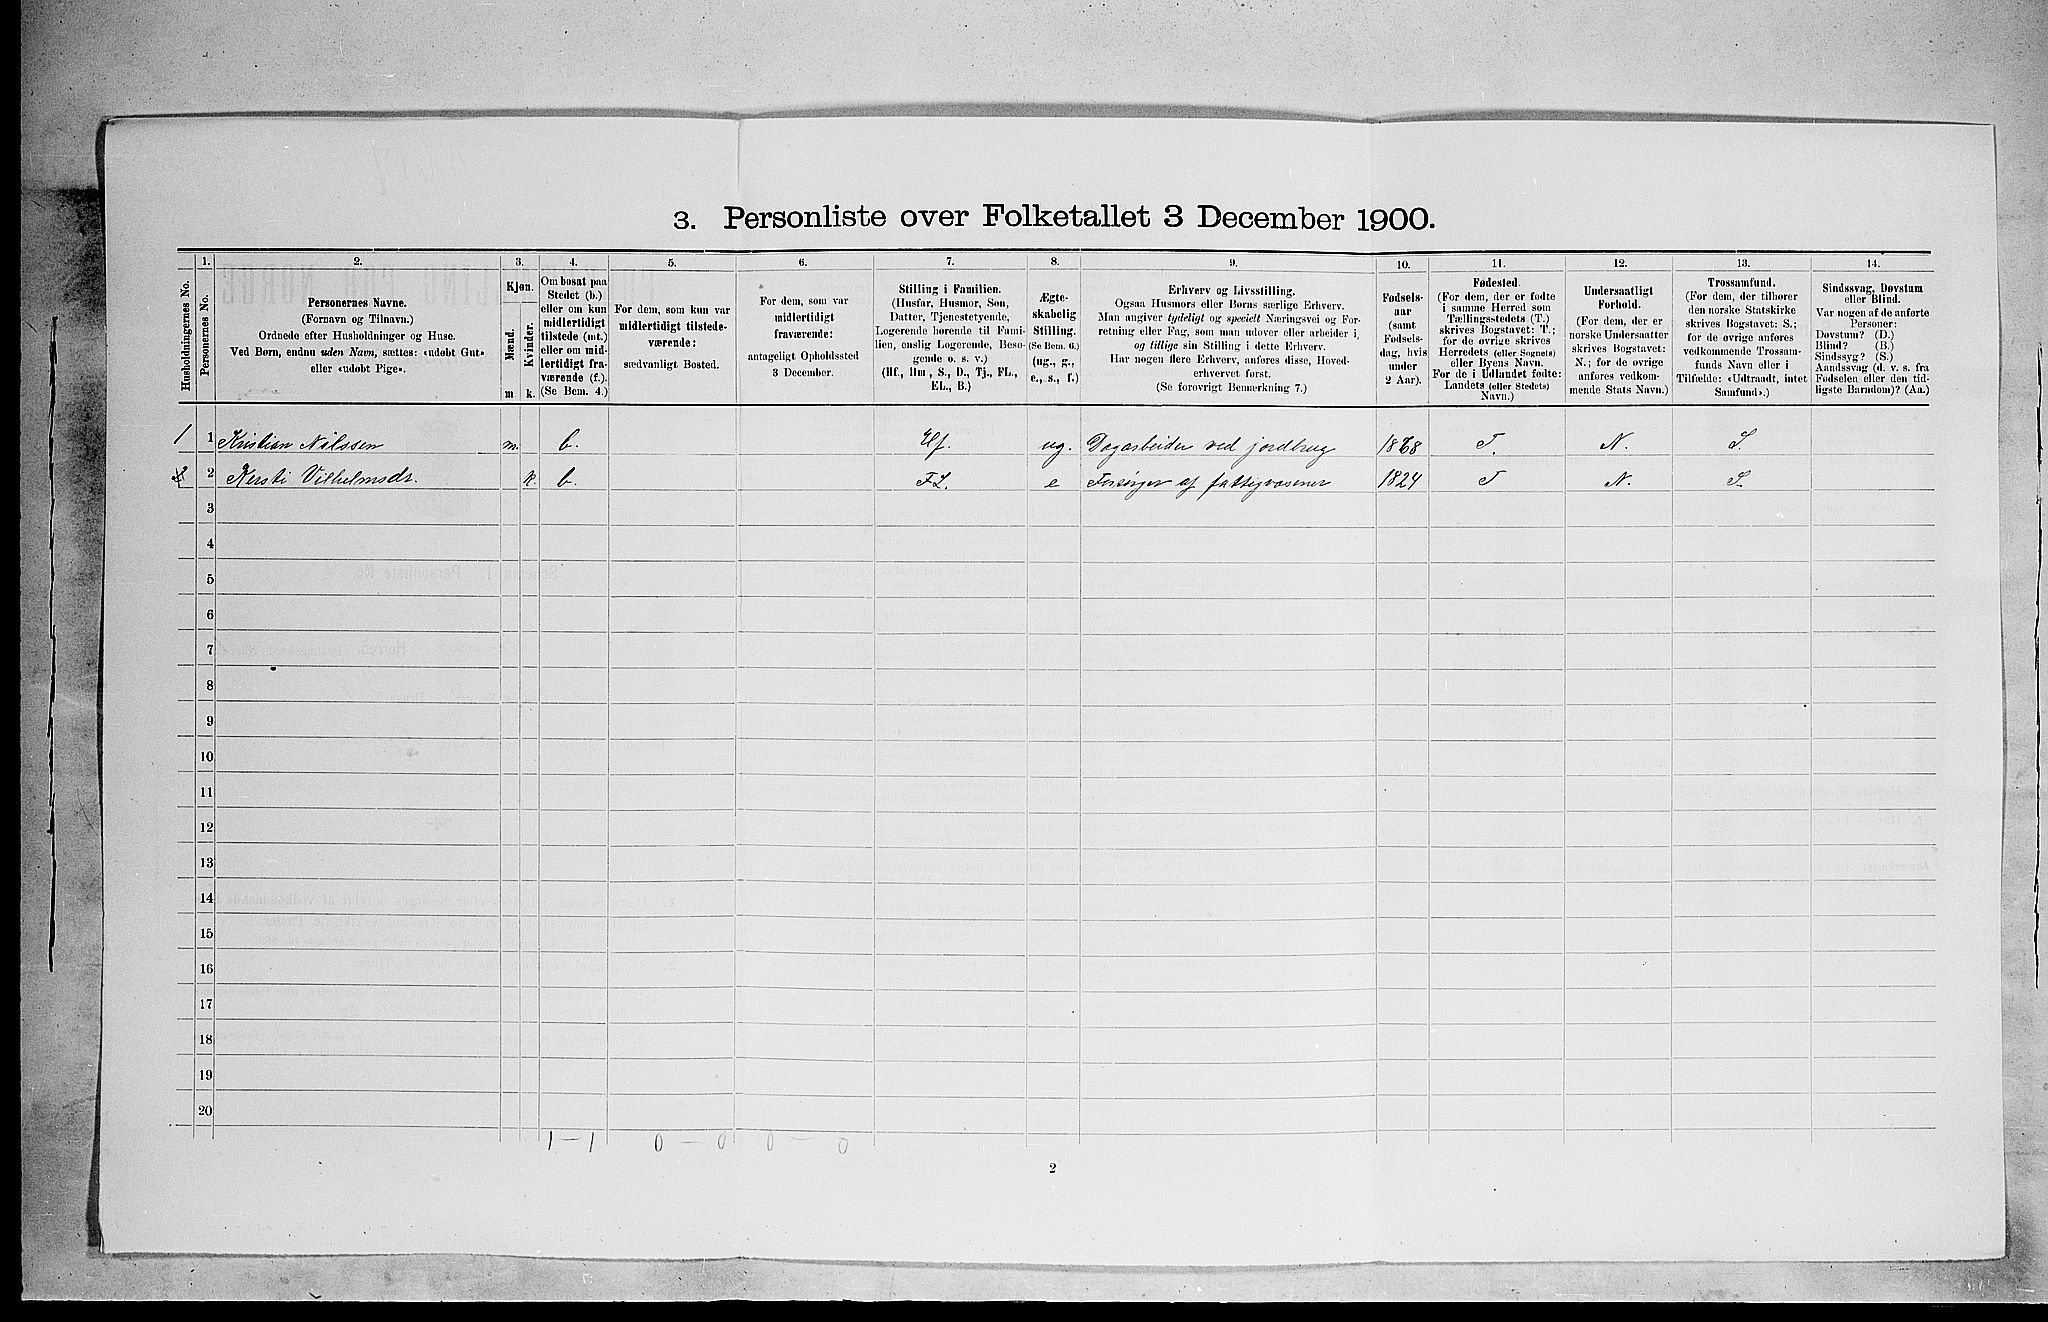 3. Personliste over Folketallet 3 December 1900.
1. 2. 3. 4. 5. 6. 7. 8. 9. 10. 11. 12. 13. 14.
Husholdningernes No.
Personernes No.
Personernes Navne.
(Fornavn og Tilnavn.)
Ordnede efter Husholdninger og Huse.
Ved Børn, endnu uden Navn, sættes: «udøbt Gut»
eller «udøbt Pige».
Kjøn.
Mænd.
Kvinder.
m. k.
Om bosat paa
Stedet (b.)
eller om kun
midlertidigt
tilstede (mt.)
eller om mid-
lertidigt fra-
værende (f.).
(Se Bem. 4.)
For dem, som kun var
midlertidigt tilstede-
værende:
sædvanligt Bosted.
For dem, som var
midlertidigt
fraværende:
antageligt Opholdssted
3 December.
Stilling i Familien.
(Husfar, Husmor, Søn,
Datter, Tjenestetyende,
Logerende hørende til Fami-
lien, enslig Logerende, Besø-
gende o. s. v.)
(Hf., Hm., S., D., Tj., FL.,
EL., B.)
Ægte-
skabelig
Stilling.
(Se Bem. 6.)
(ug., g.,
e., s., f.)
Erhverv og Livsstilling.
Ogsaa Husmors eller Børns særlige Erhverv.
Man angiver tydeligt og specielt Næringsvei og For-
retning eller Fag, som man udøver eller arbeider i,
og tillige sin Stilling i dette Erhverv.
Har nogen flere Erhverv, anføres disse, Hoved-
erhvervet først.
(Se forøvrigt Bemærkning 7.)
Fødsels-
aar
(samt
Fødsels-
dag, hvis
under
2 Aar).
Fødested.
(For dem, der er fødte
i samme Herred som
Tællingsstedets (T.)
skrives Bogstavet: T.;
for de øvrige skrives
Herredets (eller Sognets)
eller Byens Navn.
For de i Udlandet fødte:
Landets (eller Stedets)
Navn.)
Undersaatligt
Forhold.
(For dem, der er
norske Undersaatter
skrives Bogstavet:
N.; for de øvrige
anføres vedkom-
mende Stats Navn.)
Trossamfund.
(For dem, der tilhører
den norske Statskirke
skrives Bogstavet: S.;
for de øvrige anføres
vedkommende Trossam-
funds Navn eller i
Tilfælde: «Udtraadt, intet
Samfund».)
Sindssvag, Døvstum
eller Blind.
Var nogen af de anførte
Personer:
Døvstum? (D.)
Blind? (B.)
Sindssyg? (S.)
Aandssvag (d. v. s. fra
Fødselen eller den tid-
ligste Barndom)? (Aa.)
1 1 Kristian Nilssen m. b. Hf. ug. Dagarbeider ved jordbrug 1868 T. N. S.
2 2 Kersti Vilhelmsdr. k. b. FL. e Forsørges af fattigvæsenet 1824 T N. S.
3
4
5
6
7
8
9
10
11
12
13
14
15
16
17
18
19
20
1 – 1 0 – 0 0 – 0
2